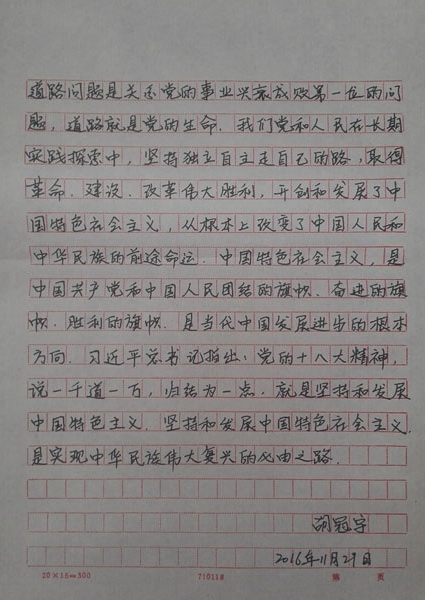 道路问题是关系党的事业兴衰成败第一位的问
题，道路就是党的生命．我们党和人民在长期
实践探索中，坚持独立自主走自己的路，取得
革命．建设．改革伟大胜利，开创和发展了中
国特色社会主义，从根本上改变了中国人民和
中华民族的前途命运．中国特色社会主义，是
中国共产党和中国人民团结的旗帜．奋进的旗
帜．胜利的旗帜．是当代中国发展进步的根本
方向．习近平总书记指出：党的十八大精神，
说一千道一万，归结为一点．就是坚持和发展
中国特色主义．坚持和发展中国特色社会主义．
是实现中华民族伟大复兴的必由之路．
胡冠宇
2016年11月29日
20×15=300 710118 第 页